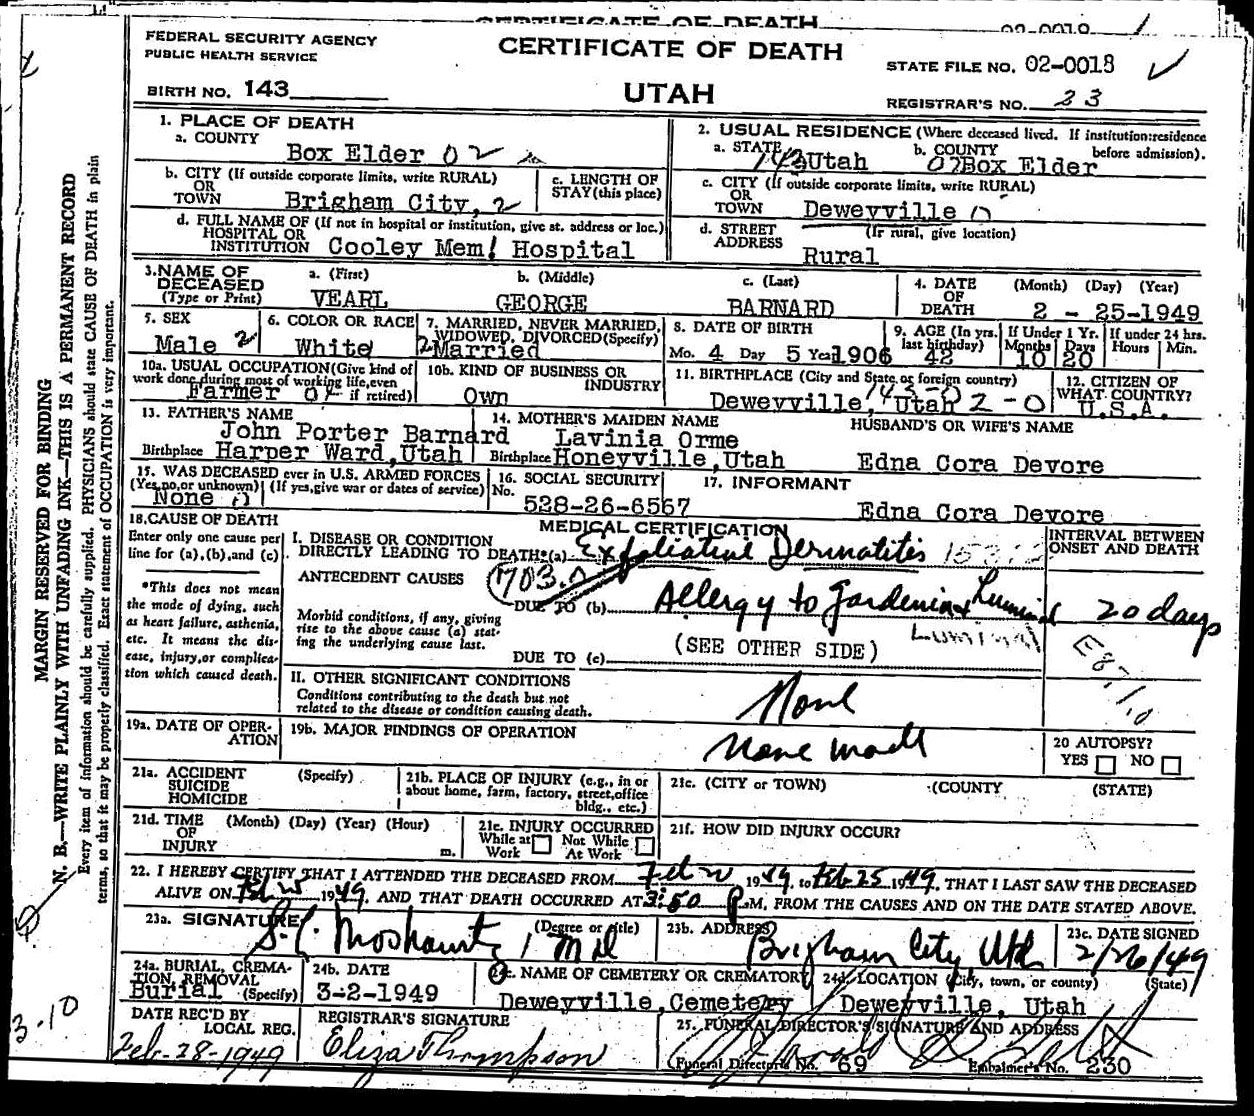 CERTIFICATE OF DEATH
02-0018
FEDERAL SECURITY AGENCY
PUBLIC HEALTH SERVICE
CERTIFICATE OF DEATH
STATE FILE NO. 02-0018
BIRTH NO. 143
UTAH
REGISTRAR'S NO. 23
1. PLACE OF DEATH
a. COUNTY
Box Elder 02
2. USUAL RESIDENCE (Where deceased lived. If institution:residence before admission).
a. STATE 143 Utah b. COUNTY 02 Box Elder
b. CITY (If outside corporate limits, write RURAL)
OR
TOWN Brigham City, 2
c. LENGTH OF
STAY (this place)
c. CITY (If outside corporate limits, write RURAL)
OR
TOWN Deweyville 0
d. FULL NAME OF (If not in hospital or institution, give st. address or loc.)
HOSPITAL OR
INSTITUTION Cooley Mem! Hospital
d. STREET (If rural, give location)
ADDRESS
Rural
3. NAME OF
DECEASED
(Type or Print)
a. (First) b. (Middle) c. (Last)
VEARL GEORGE BARNARD
4. DATE
OF
DEATH
(Month) (Day) (Year)
2 - 25-1949
5. SEX
Male 2
6. COLOR OR RACE
White
7. MARRIED, NEVER MARRIED,
WIDOWED, DIVORCED (Specify)
2 Married
8. DATE OF BIRTH
Mo. 4 Day 5 Year 1906
9. AGE (In yrs. last birthday)
42
If Under 1 Yr.
Months Days
10 20
If under 24 hrs.
Hours Min.
10a. USUAL OCCUPATION (Give kind of
work done during most of working life, even
if retired)
Farmer
10b. KIND OF BUSINESS OR
INDUSTRY
Own
11. BIRTHPLACE (City and State or foreign country)
Deweyville, Utah 2-0
12. CITIZEN OF
WHAT COUNTRY?
U.S.A.
13. FATHER'S NAME
John Porter Barnard
Birthplace Harper Ward, Utah
14. MOTHER'S MAIDEN NAME
Lavinia Orme
Birthplace Honeyville, Utah
HUSBAND'S OR WIFE'S NAME
Edna Cora Devore
15. WAS DECEASED ever in U.S. ARMED FORCES
(Yes, no, or unknown) (If yes, give war or dates of service)
None 0
16. SOCIAL SECURITY
No.
528-26-6567
17. INFORMANT
Edna Cora Devore
18. CAUSE OF DEATH
Enter only one cause per
line for (a), (b), and (c)
*This does not mean
the mode of dying, such
as heart failure, asthenia,
etc. It means the dis-
ease, injury, or complica-
tion which caused death.
MEDICAL CERTIFICATION
I. DISEASE OR CONDITION
DIRECTLY LEADING TO DEATH*(a) Exfoliative Dermatitis
INTERVAL BETWEEN
ONSET AND DEATH
ANTECEDENT CAUSES
703.
Morbid conditions, if any, giving
rise to the above cause (a) stat-
ing the underlying cause last.
DUE TO (b) Allergy to Gardenia & Luminal
20 days
Luminal
(SEE OTHER SIDE)
DUE TO (c)
II. OTHER SIGNIFICANT CONDITIONS
Conditions contributing to the death but not
related to the disease or condition causing death.
None
19a. DATE OF OPER-
ATION
19b. MAJOR FINDINGS OF OPERATION
None made
20 AUTOPSY?
YES NO
21a. ACCIDENT
SUICIDE
HOMICIDE
(Specify)
21b. PLACE OF INJURY (e.g., in or
about home, farm, factory, street, office
bldg., etc.)
21c. (CITY or TOWN) (COUNTY (STATE)
21d. TIME
OF
INJURY
(Month) (Day) (Year) (Hour)
m.
21e. INJURY OCCURRED
While at
Work
Not While
At Work
21f. HOW DID INJURY OCCUR?
22. I HEREBY CERTIFY THAT I ATTENDED THE DECEASED FROM Feb 20 1949, to Feb 25 1949, THAT I LAST SAW THE DECEASED
ALIVE ON Feb 25 1949, AND THAT DEATH OCCURRED AT 3:50 P.M, FROM THE CAUSES AND ON THE DATE STATED ABOVE.
23a. SIGNATURE (Degree or title)
MD
23b. ADDRESS
Brigham City Utah
23c. DATE SIGNED
2/26/49
24a. BURIAL, CREMA-
TION, REMOVAL
Burial (Specify)
24b. DATE
3-2-1949
24c. NAME OF CEMETERY OR CREMATORY
Deweyville, Cemetery
24d. LOCATION (City, town, or county) (State)
Deweyville, Utah
DATE REC'D BY
LOCAL REG.
Feb-28-1949
REGISTRAR'S SIGNATURE
Eliza Thompson
25. FUNERAL DIRECTOR'S SIGNATURE AND ADDRESS
(Funeral Director's No. 69 Embalmer's No. 230
MARGIN RESERVED FOR BINDING
N. B.—WRITE PLAINLY WITH UNFADING INK—THIS IS A PERMANENT RECORD
Every item of information should be carefully supplied. PHYSICIANS should state CAUSE OF DEATH in plain
terms, so that it may be properly classified. Exact statement of OCCUPATION is very important.
3-10